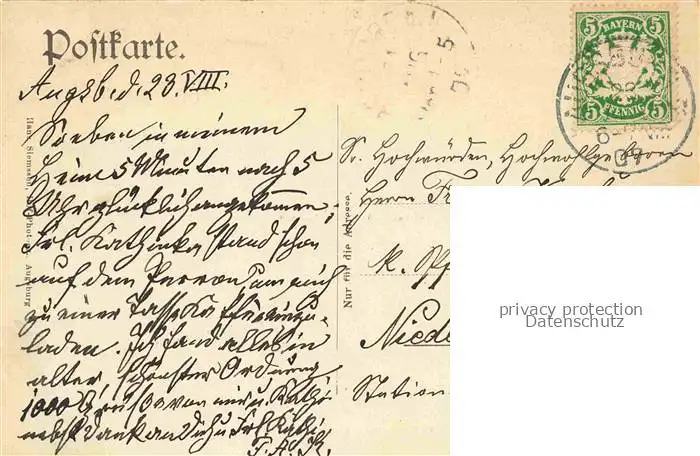 Postkarte.
Augsb. d. 28. VIII.
Soeben in meinem
Heime 5 Minuten nach 5
Uhr glücklich angekommen,
Frl. Kathinka stand schon
auf dem Perron, um mich
zu einer Tasse Kaffee einzu-
laden. Ich fand alles in
alter, schönster Ordnung
1000 Grüße von mir u. Kathi
nebst Dank an Dich u. Frl. Kathi
F. A. K.
Augsburg
Nur für die Adresse.
5 BAYERN 5
5 PFENNIG 5
09
Sr. Hochwürden, Hochwohlgeboren
Herrn
K.
Niede
Station
privacy protection
Datenschutz